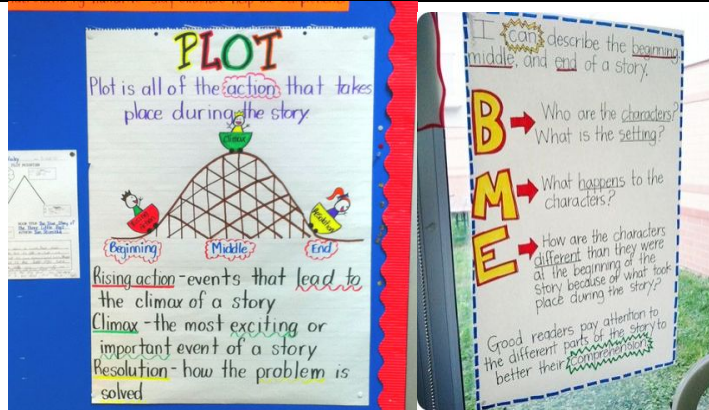 PLOT
Plot is all of the action that takes
place during the story
Climax
Beginning
Middle
End
Rising action - events that lead to
the climax of a story
Climax - the most exciting or
important event of a story
Resolution - how the problem is
solved
I can describe the beginning,
middle, and end of a story.
B
Who are the characters?
What is the setting?
M
What happens to the
characters?
E
How are the characters
different than they were
at the beginning of the
story because of what took
place during the story?
Good readers pay attention to
the different parts of the story to
better their comprehension